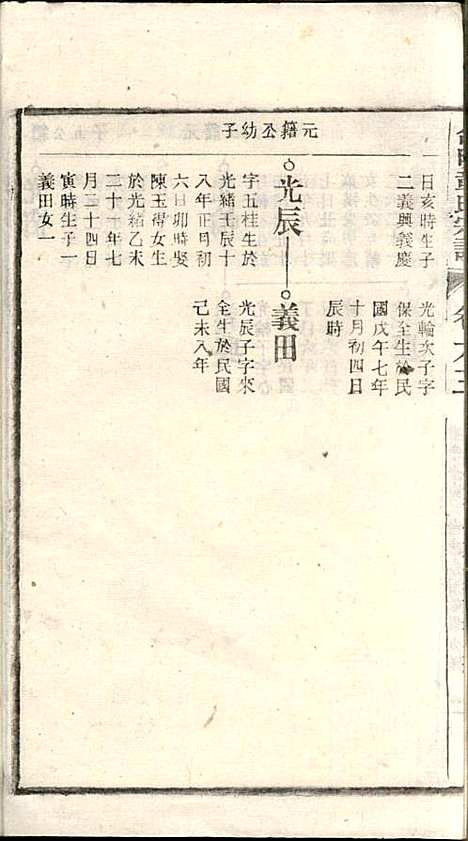 元籍公幼子
日亥時生子
二義興義慶
光輪次子字
保全生於民
國戊午七年
十月初四日
辰時
光辰
字五桂生於
光緒壬辰十
八年正月初
六日卯時娶
陳玉得女生
於光緒乙未
二十一年七
月二十四日
寅時生子一
義田女一
義田
光辰子字來
全生於民國
己未八年